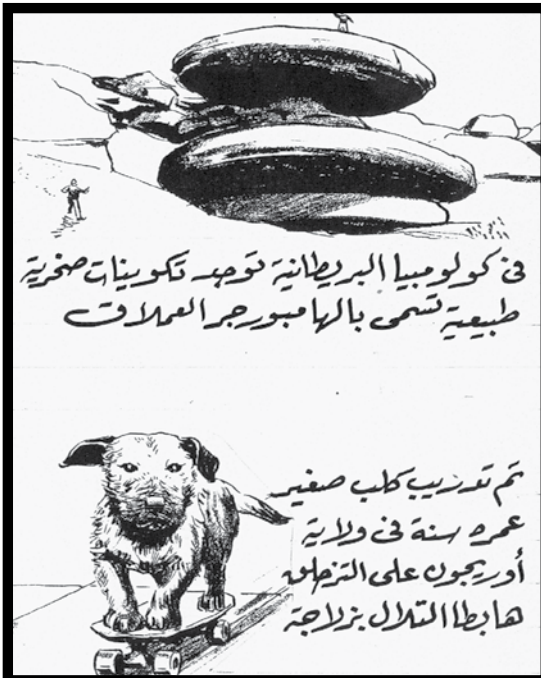 في كولومبيا البريطانية توجد تكوينات صخرية
طبيعية تسمى بالهامبورجر العملاق
تم تدريب كلب صغير
عمره سنة في ولاية
أوريجون على التزحلق
هابطا التلال بزلاجة